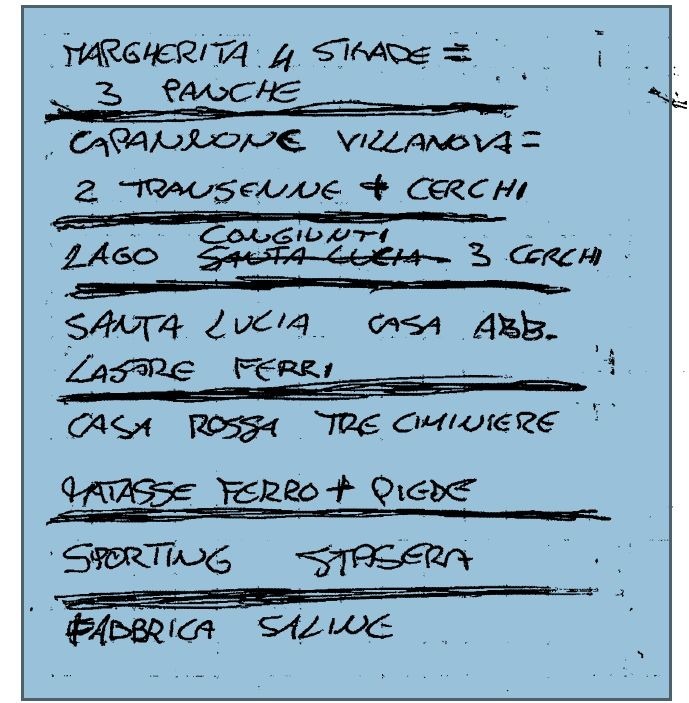 MARGHERITA 4 STRADE =
3 PANCHE
CAPANNONE VILLANOVA =
2 TRANSENNE + CERCHI
CONGIUNTI
LAGO SANTA LUCIA 3 CERCHI
SANTA LUCIA CASA ABB.
LASARE FERRI
CASA ROSSA TRE CIMINIERE
MATASSE FERRO + PIEDE
SPORTING STASERA
FABBRICA SALINE